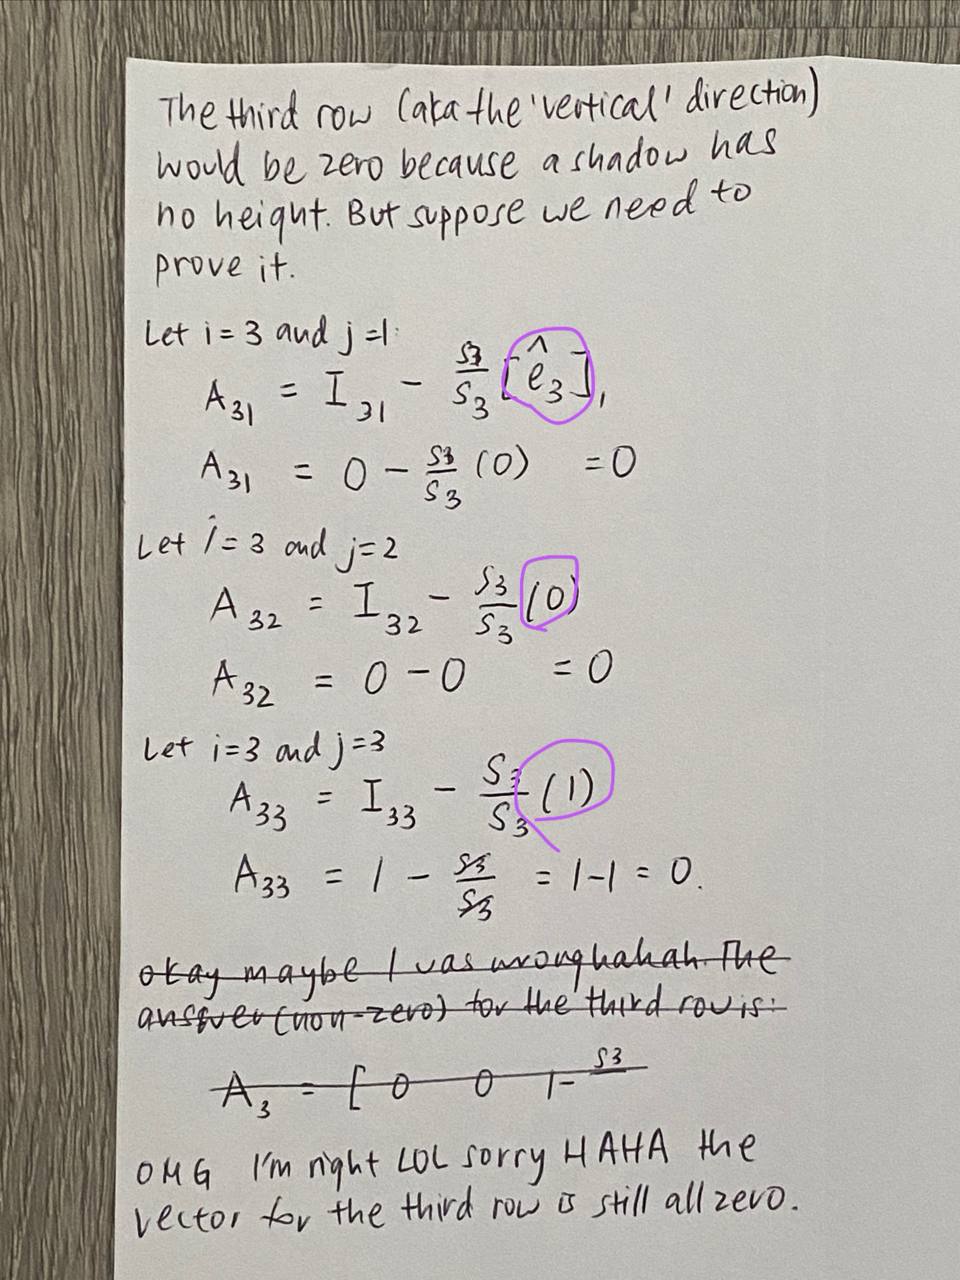 The third row (aka the 'vertical' direction)
would be zero because a shadow has
no height. But suppose we need to
prove it.
Let i = 3 and j = 1:
A₃₁ = I₃₁ - s₃/s₃ [ê₃]₁
A₃₁ = 0 - s₃/s₃ (0) = 0
Let i = 3 and j = 2
A₃₂ = I₃₂ - s₃/s₃ (0)
A₃₂ = 0 - 0 = 0
Let i = 3 and j = 3
A₃₃ = I₃₃ - s₃/s₃ (1)
A₃₃ = 1 - s₃/s₃ = 1 - 1 = 0.
okay maybe I was wrong hahah. The
answer (non-zero) for the third row is:
A₃ = [ 0 0 1 - s₃
OMG I'm right LOL sorry HAHA the
vector for the third row is still all zero.